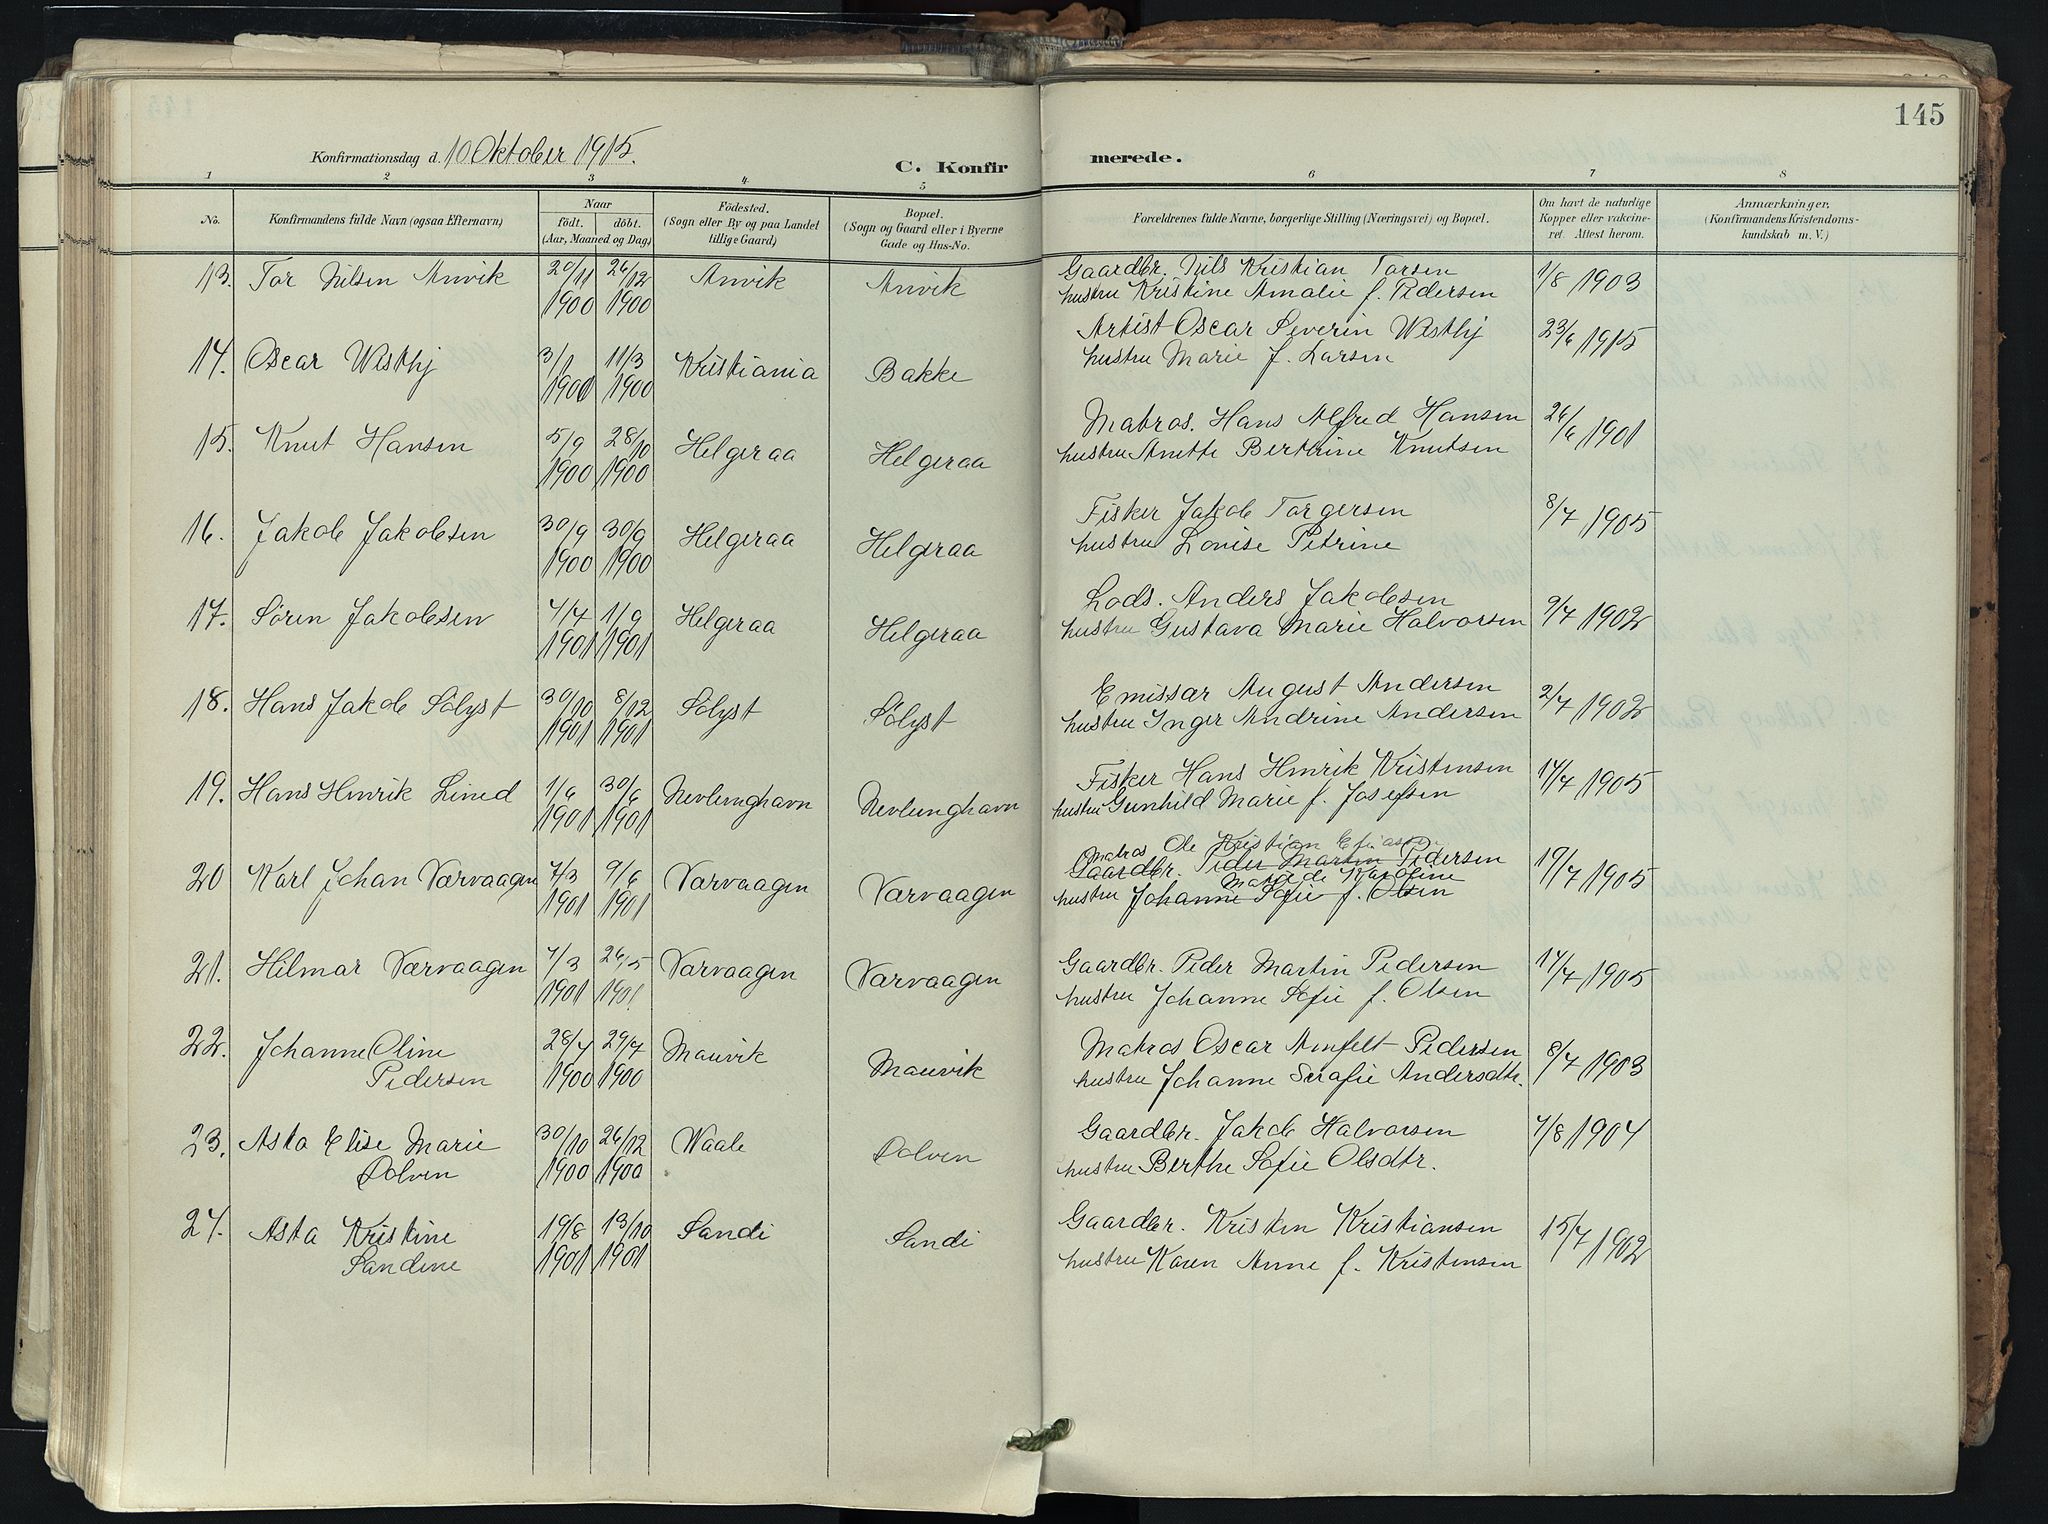 145
Konfirmationsdag d. 10 Oktober 1915.
C. Konfirmerede.
1 2 3 4 5 6 7 8
No. Konfirmandens fulde Navn (ogsaa Efternavn) Naar født. døbt. (Aar, Maaned og Dag) Födested. (Sogn eller By og paa Landet tillige Gaard) Bopæl. (Sogn og Gaard eller i Byerne Gade og Hus-No. Forældrenes fulde Navne, borgerlige Stilling (Næringsvei) og Bopæl. Om havt de naturlige Kopper eller vakcineret. Attest herom. Anmærkninger. (Konfirmandens Kristendomskundskab m. V.)
13. Tor Nilsen Anvik 20/11 1900 26/12 1900 Anvik Anvik Gaardbr. Nils Kristian Torsen 1/8 1903
hustru Kristine Amalie f. Pedersen
14. Oscar Westby 3/1 1900 11/3 1900 Kristiania Bakke Artist Oscar Severin Westby 23/6 1915
hustru Marie f. Larsen
15. Knut Hansen 5/9 1900 28/10 1900 Helgeraa Helgeraa Matros. Hans Alfred Hansen 26/6 1901
hustru Anette Berthine Knutsen
16. Jakob Jakobsen 30/9 1900 30/9 1900 Helgeraa Helgeraa Fisker Jakob Torgersen 8/7 1905
hustru Louise Petrine
17. Sören Jakobsen 7/7 1901 1/9 1901 Helgeraa Helgeraa Lods. Anders Jakobsen 9/7 1902
hustru Gustava Marie Halvorsen
18. Hans Jakob Sölyst 30/10 1901 8/12 1901 Sölyst Sölyst Emissær August Andersen 2/7 1902
hustru Inger Andrine Andersen
19. Hans Henrik Lined 1/6 1901 30/6 1901 Nevlunghavn Nevlunghavn Fisker Hans Henrik Kristensen 14/7 1905
hustru Gunhild Marie f. Josefsen
20 Karl Johan Værvaagen 7/3 1901 9/6 1901 Værvaagen Værvaagen Matros Ole Kristian Eliassen 19/7 1905
Gaardbr. Peder Martin Pedersen
Matilde Karoline
hustru Johanne Sofie f. Olsen
21. Hilmar Værvaagen 7/3 1901 26/5 1901 Værvaagen Værvaagen Gaardbr. Peder Martin Pedersen 14/7 1905
hustru Johanne Sofie f. Olsen
22. Johanne Oline 28/4 1900 29/7 1900 Manvik Manvik Matros Oscar Amfelt Pedersen 8/7 1903
Pedersen hustru Johanne Serafie Andersdtr.
23. Asta Elise Marie 30/10 1900 26/12 1900 Waale Dolven Gaardbr. Jakob Halvorsen 7/8 1904
Dolven hustru Berthe Sofie Olsdtr.
24. Asta Kristine 19/8 1901 13/10 1901 Sandi Sandi Gaardbr. Kristen Kristiansen 15/7 1902
Sandene hustru Karen Anne f. Kristensen